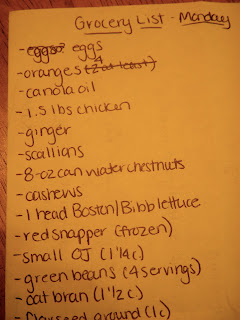 Grocery List - Monday
- eggs eggs
- oranges (2 at least) 4
- canola oil
- 1.5 lbs chicken
- ginger
- scallians
- 8-oz can water chestnuts
- cashews
- 1 head Boston/Bibb lettuce
- red snapper (frozen)
- small OJ (1 1/4 c)
- green beans (4 servings)
- oat bran (1 1/2 c)
- flaxseed ground (1 c)